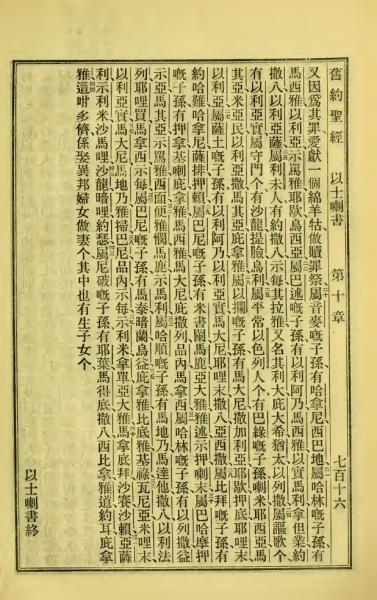 舊約聖經　以士喇書　第十章　七百十六
又因爲其罪愛獻一個綿羊牯做贖罪祭、屬音麥嘅子孫有哈拿尼西巴地屬哈林嘅子孫有
馬西雅以利亞示罵雅耶歇烏西亞屬巴述嘅子孫有以利阿乃馬西雅以實馬利但業約
撒八以利亞薩屬利未人有約撒八示每其拉雅又名其利大庇大希猶太以列撒屬謳歌个
有以利亞實屬守門个有沙龍提臉烏利屬平常以色列人个有巴綠嘅子孫喇米耶西亞馬
其亞米亞民以利亞撒馬其亞庇拿雅屬以攔嘅子孫有馬大尼撒加利亞耶歇押底耶哩末
以利亞屬薩土嘅子孫有以利阿乃以利亞實馬大尼耶哩末撒八亞西撒屬比拜嘅子孫有
約哈難哈拿尼薩排押賴屬巴尼嘅子孫有米書闌馬鹿亞大雅雅述示押喇末屬巴哈摩押
嘅子孫有押拿基喇庇拿雅馬西雅馬大尼庇撒列品內馬拿西屬哈林嘅子孫有以列撒益
示亞馬其亞示罵雅西面便雅憫馬鹿示馬利屬哈順嘅子孫有馬地乃馬達他撒八以利法
列耶哩買馬拿西示每屬巴尼嘅子孫有馬泰暗蘭烏益庇拿雅比底雅基祿瓦尼亞米哩末
以利亞實馬大尼馬地乃雅掃巴尼品內示每示利米拿單亞大雅馬拿底拜沙賽沙賴亞薩
利示利米沙馬哩沙龍暗哩約瑟屬尼破嘅子孫有耶葉馬得底撒八西比拿雅道約耳庇拿
雅這咁多儕係娶異邦婦女做妻个其中也有生子女个、
以士喇書終